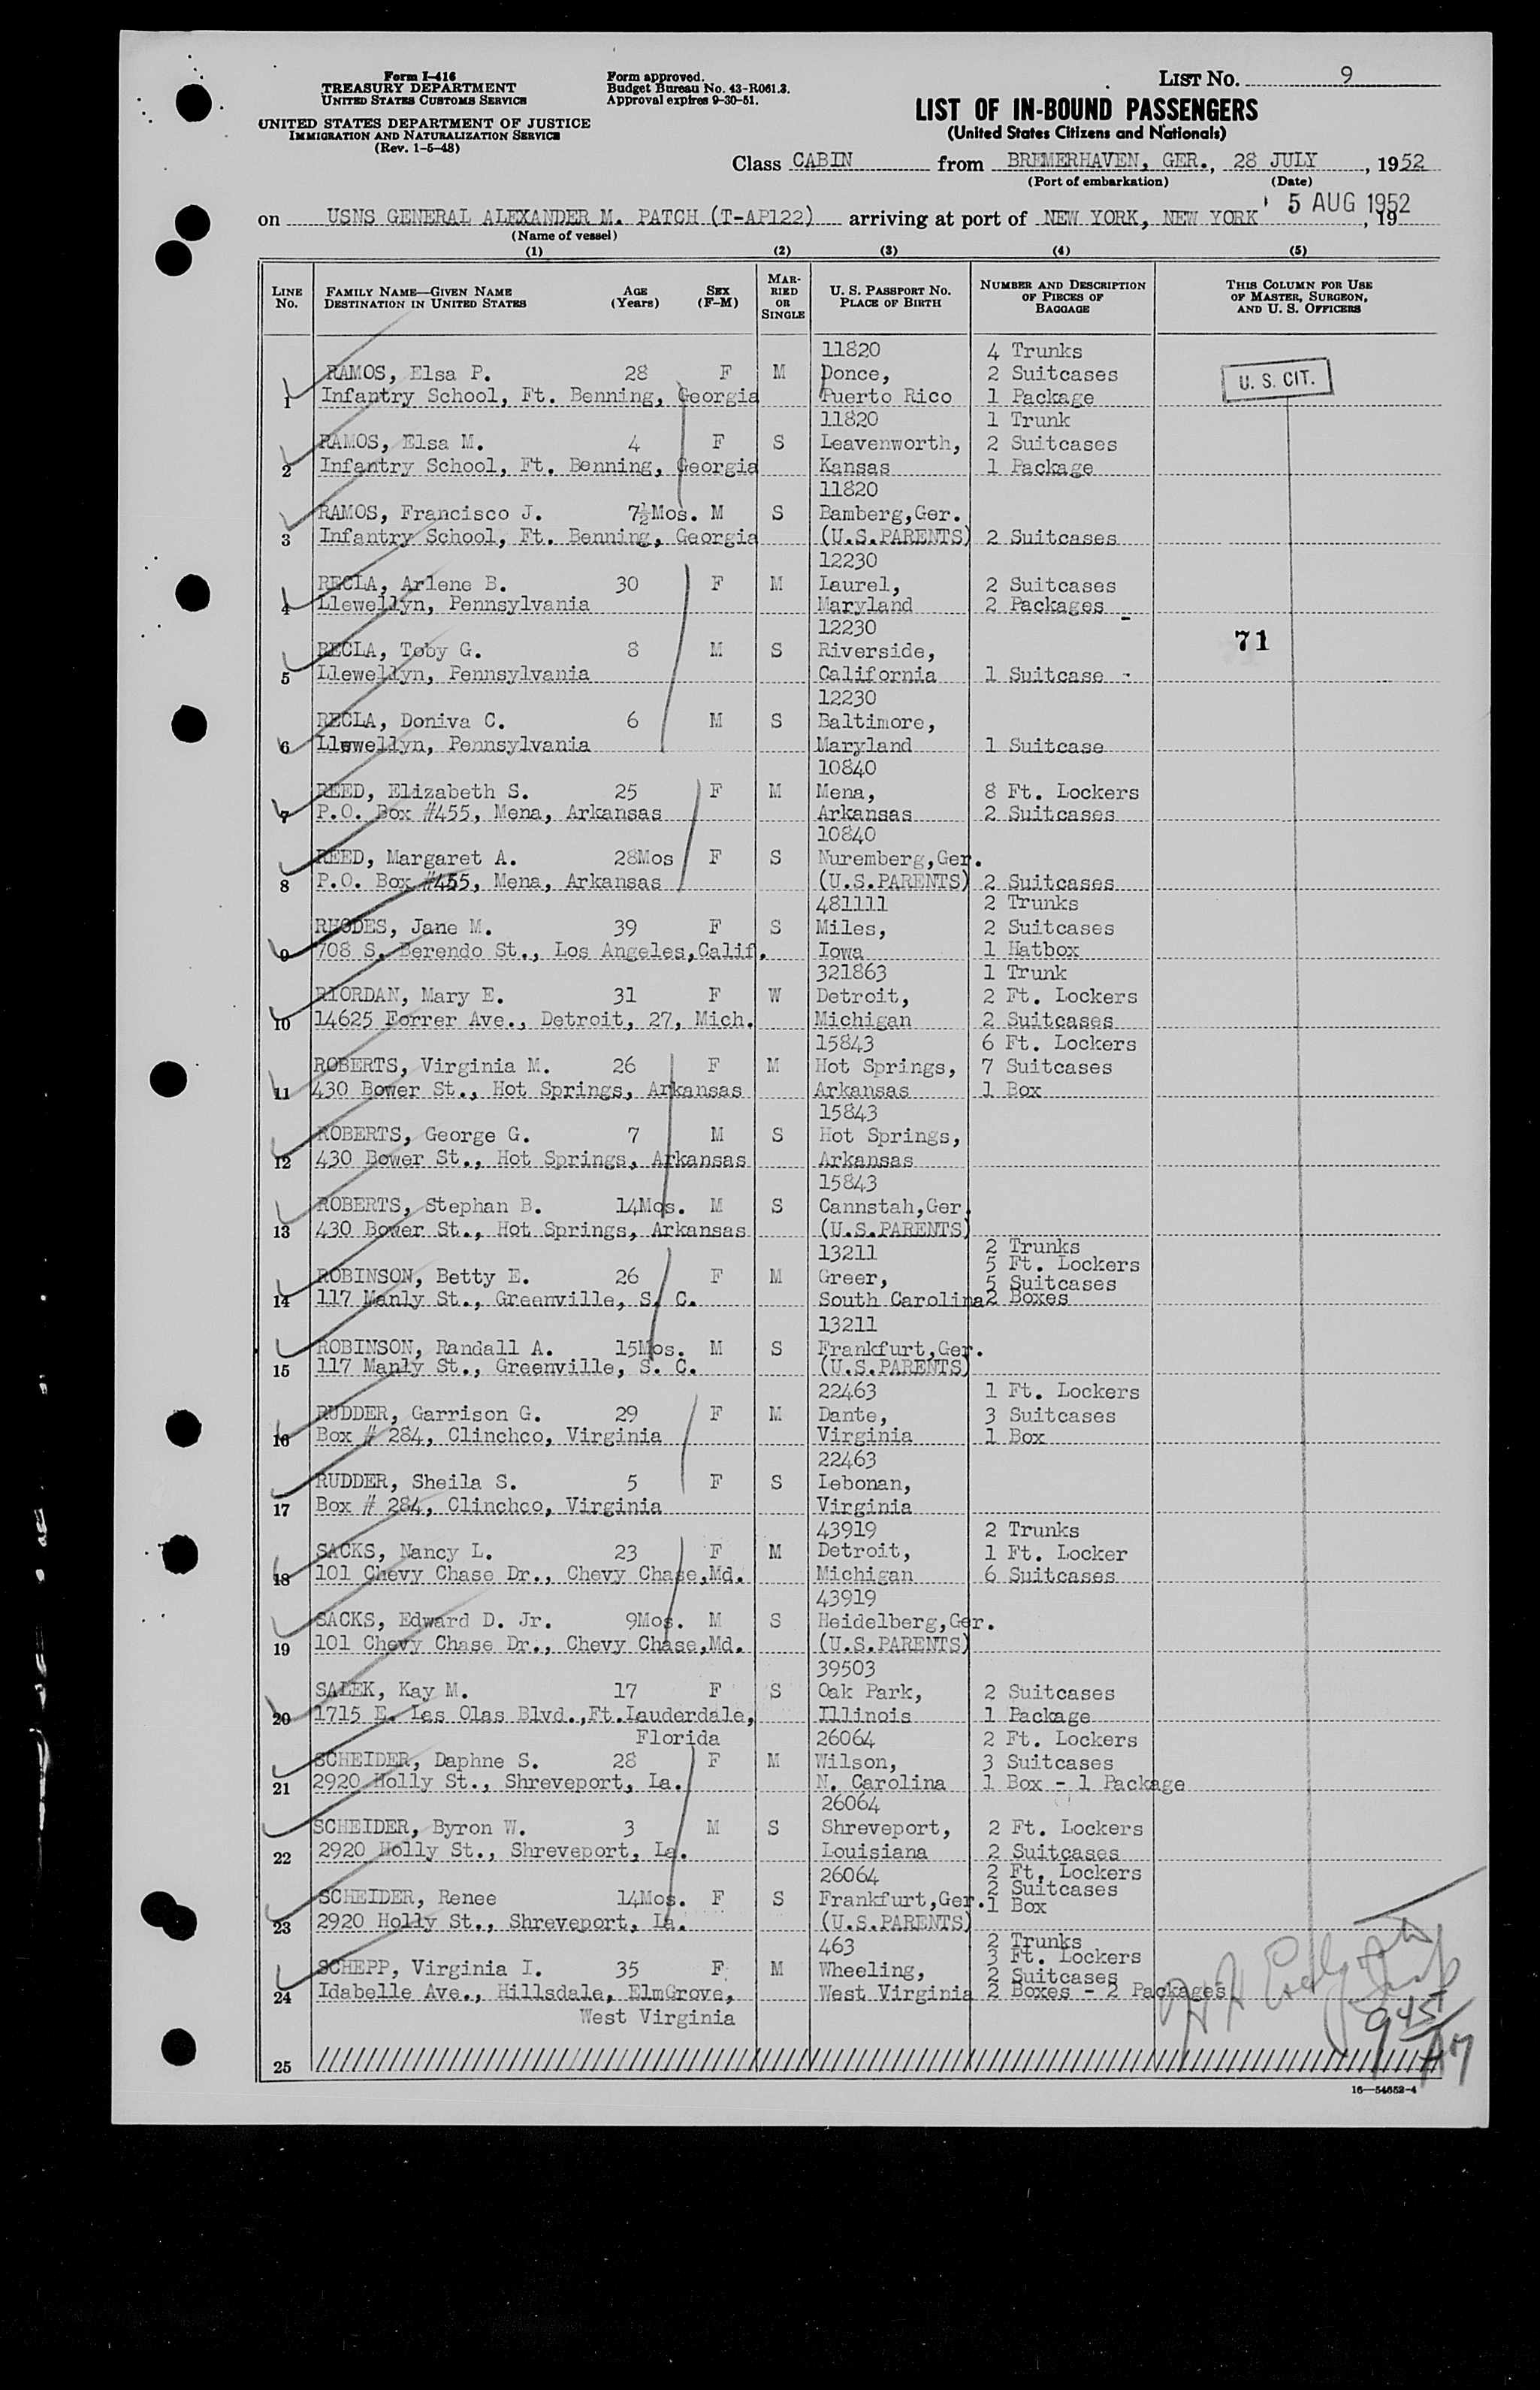 Form I-416
TREASURY DEPARTMENT
UNITED STATES CUSTOMS SERVICE
UNITED STATES DEPARTMENT OF JUSTICE
IMMIGRATION AND NATURALIZATION SERVICE
(Rev. 1-5-48)
Form approved.
Budget Bureau No. 43-R061.3.
Approval expires 9-30-51.
LIST NO. 9
LIST OF IN-BOUND PASSENGERS
(United States Citizens and Nationals)
Class CABIN from BREMERHAVEN, GER., 28 JULY, 1952
(Port of embarkation) (Date)
on USNS GENERAL ALEXANDER M. PATCH (T-AP122) arriving at port of NEW YORK, NEW YORK 5 AUG 1952, 19
(Name of vessel)
(1) (2) (3) (4) (5)
LINE NO. FAMILY NAME—GIVEN NAME DESTINATION IN UNITED STATES AGE (Years) SEX (F-M) MARRIED OR SINGLE U. S. PASSPORT NO. PLACE OF BIRTH NUMBER AND DESCRIPTION OF PIECES OF BAGGAGE THIS COLUMN FOR USE OF MASTER, SURGEON, AND U. S. OFFICERS
11820 4 Trunks
RAMOS, Elsa P. 28 F M Ponce, 2 Suitcases U. S. CIT.
1 Infantry School, Ft. Benning, Georgia Puerto Rico 1 Package
11820 1 Trunk
RAMOS, Elsa M. 4 F S Leavenworth, 2 Suitcases
2 Infantry School, Ft. Benning, Georgia Kansas 1 Package
11820
RAMOS, Francisco J. 7½Mos. M S Bamberg,Ger.
3 Infantry School, Ft. Benning, Georgia (U.S.PARENTS) 2 Suitcases
12230
RECLA, Arlene B. 30 F M Laurel, 2 Suitcases
4 Llewellyn, Pennsylvania Maryland 2 Packages
12230
RECLA, Toby G. 8 M S Riverside, 71
5 Llewellyn, Pennsylvania California 1 Suitcase
12230
RECLA, Doniva C. 6 M S Baltimore,
6 Llewellyn, Pennsylvania Maryland 1 Suitcase
10840
REED, Elizabeth S. 25 F M Mena, 8 Ft. Lockers
7 P.O. Box #455, Mena, Arkansas Arkansas 2 Suitcases
10840
REED, Margaret A. 28Mos F S Nuremberg,Ger.
8 P.O. Box #455, Mena, Arkansas (U.S.PARENTS) 2 Suitcases
481111 2 Trunks
RHODES, Jane M. 39 F S Miles, 2 Suitcases
9 708 S. Berendo St., Los Angeles,Calif. Iowa 1 Hatbox
321863 1 Trunk
RIORDAN, Mary E. 31 F W Detroit, 2 Ft. Lockers
10 14625 Forrer Ave., Detroit, 27, Mich. Michigan 2 Suitcases
15843 6 Ft. Lockers
ROBERTS, Virginia M. 26 F M Hot Springs, 7 Suitcases
11 430 Bower St., Hot Springs, Arkansas Arkansas 1 Box
15843
ROBERTS, George G. 7 M S Hot Springs,
12 430 Bower St., Hot Springs, Arkansas Arkansas
15843
ROBERTS, Stephan B. 14Mos. M S Cannstah,Ger.
13 430 Bower St., Hot Springs, Arkansas (U.S.PARENTS)
13211 2 Trunks
5 Ft. Lockers
ROBINSON, Betty E. 26 F M Greer, 5 Suitcases
14 117 Manly St., Greenville, S. C. South Carolina 2 Boxes
13211
ROBINSON, Randall A. 15Mos. M S Frankfurt,Ger.
15 117 Manly St., Greenville, S. C. (U.S.PARENTS)
22463 1 Ft. Lockers
RUDDER, Garrison G. 29 F M Dante, 3 Suitcases
16 Box # 284, Clinchco, Virginia Virginia 1 Box
22463
RUDDER, Sheila S. 5 F S Lebonan,
17 Box # 284, Clinchco, Virginia Virginia
43919 2 Trunks
SACKS, Nancy L. 23 F M Detroit, 1 Ft. Locker
18 101 Chevy Chase Dr., Chevy Chase,Md. Michigan 6 Suitcases
43919
SACKS, Edward D. Jr. 9Mos. M S Heidelberg,Ger.
19 101 Chevy Chase Dr., Chevy Chase,Md. (U.S.PARENTS)
39503
SALEK, Kay M. 17 F S Oak Park, 2 Suitcases
20 1715 E. Las Olas Blvd.,Ft.Lauderdale, Illinois 1 Package
Florida 26064 2 Ft. Lockers
SCHEIDER, Daphne S. 28 F M Wilson, 3 Suitcases
21 2920 Holly St., Shreveport, La. N. Carolina 1 Box - 1 Package
26064
SCHEIDER, Byron W. 3 M S Shreveport, 2 Ft. Lockers
22 2920 Holly St., Shreveport, La. Louisiana 2 Suitcases
26064 2 Ft. Lockers
2 Suitcases
SCHEIDER, Renee 14Mos. F S Frankfurt,Ger. 1 Box
23 2920 Holly St., Shreveport, La. (U.S.PARENTS)
463 2 Trunks
3 Ft. Lockers
SCHEPP, Virginia I. 35 F M Wheeling, 2 Suitcases
24 Idabelle Ave., Hillsdale, ElmGrove, West Virginia 2 Boxes - 2 Packages
West Virginia
945
25
16—54652-4